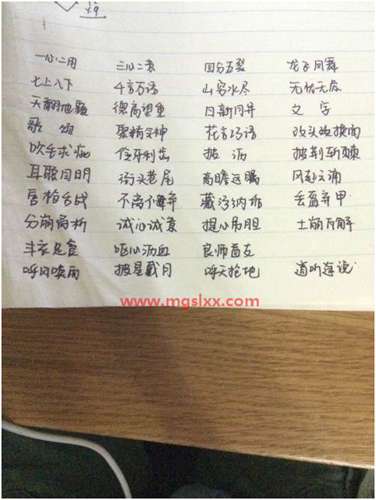 一心二用 三心二意 四分五裂 龙飞凤舞
七上八下 千言万语 山穷水尽 无忧无虑
天翻地覆 德高望重 日新月异 文 字
歌 颂 聚精会神 花言巧语
吹毛求疵 伶牙利齿 披荆斩棘
耳聪目明 街头巷尾 高瞻远瞩 风起云涌
唇枪舌战 藏污纳垢 丢盔弃甲
分崩离析 诚心诚意 提心吊胆 土崩瓦解
丰衣足食 呕心沥血 良师益友
呼风唤雨 披星戴月 呼天抢地 道听途说
www.mgslxx.com